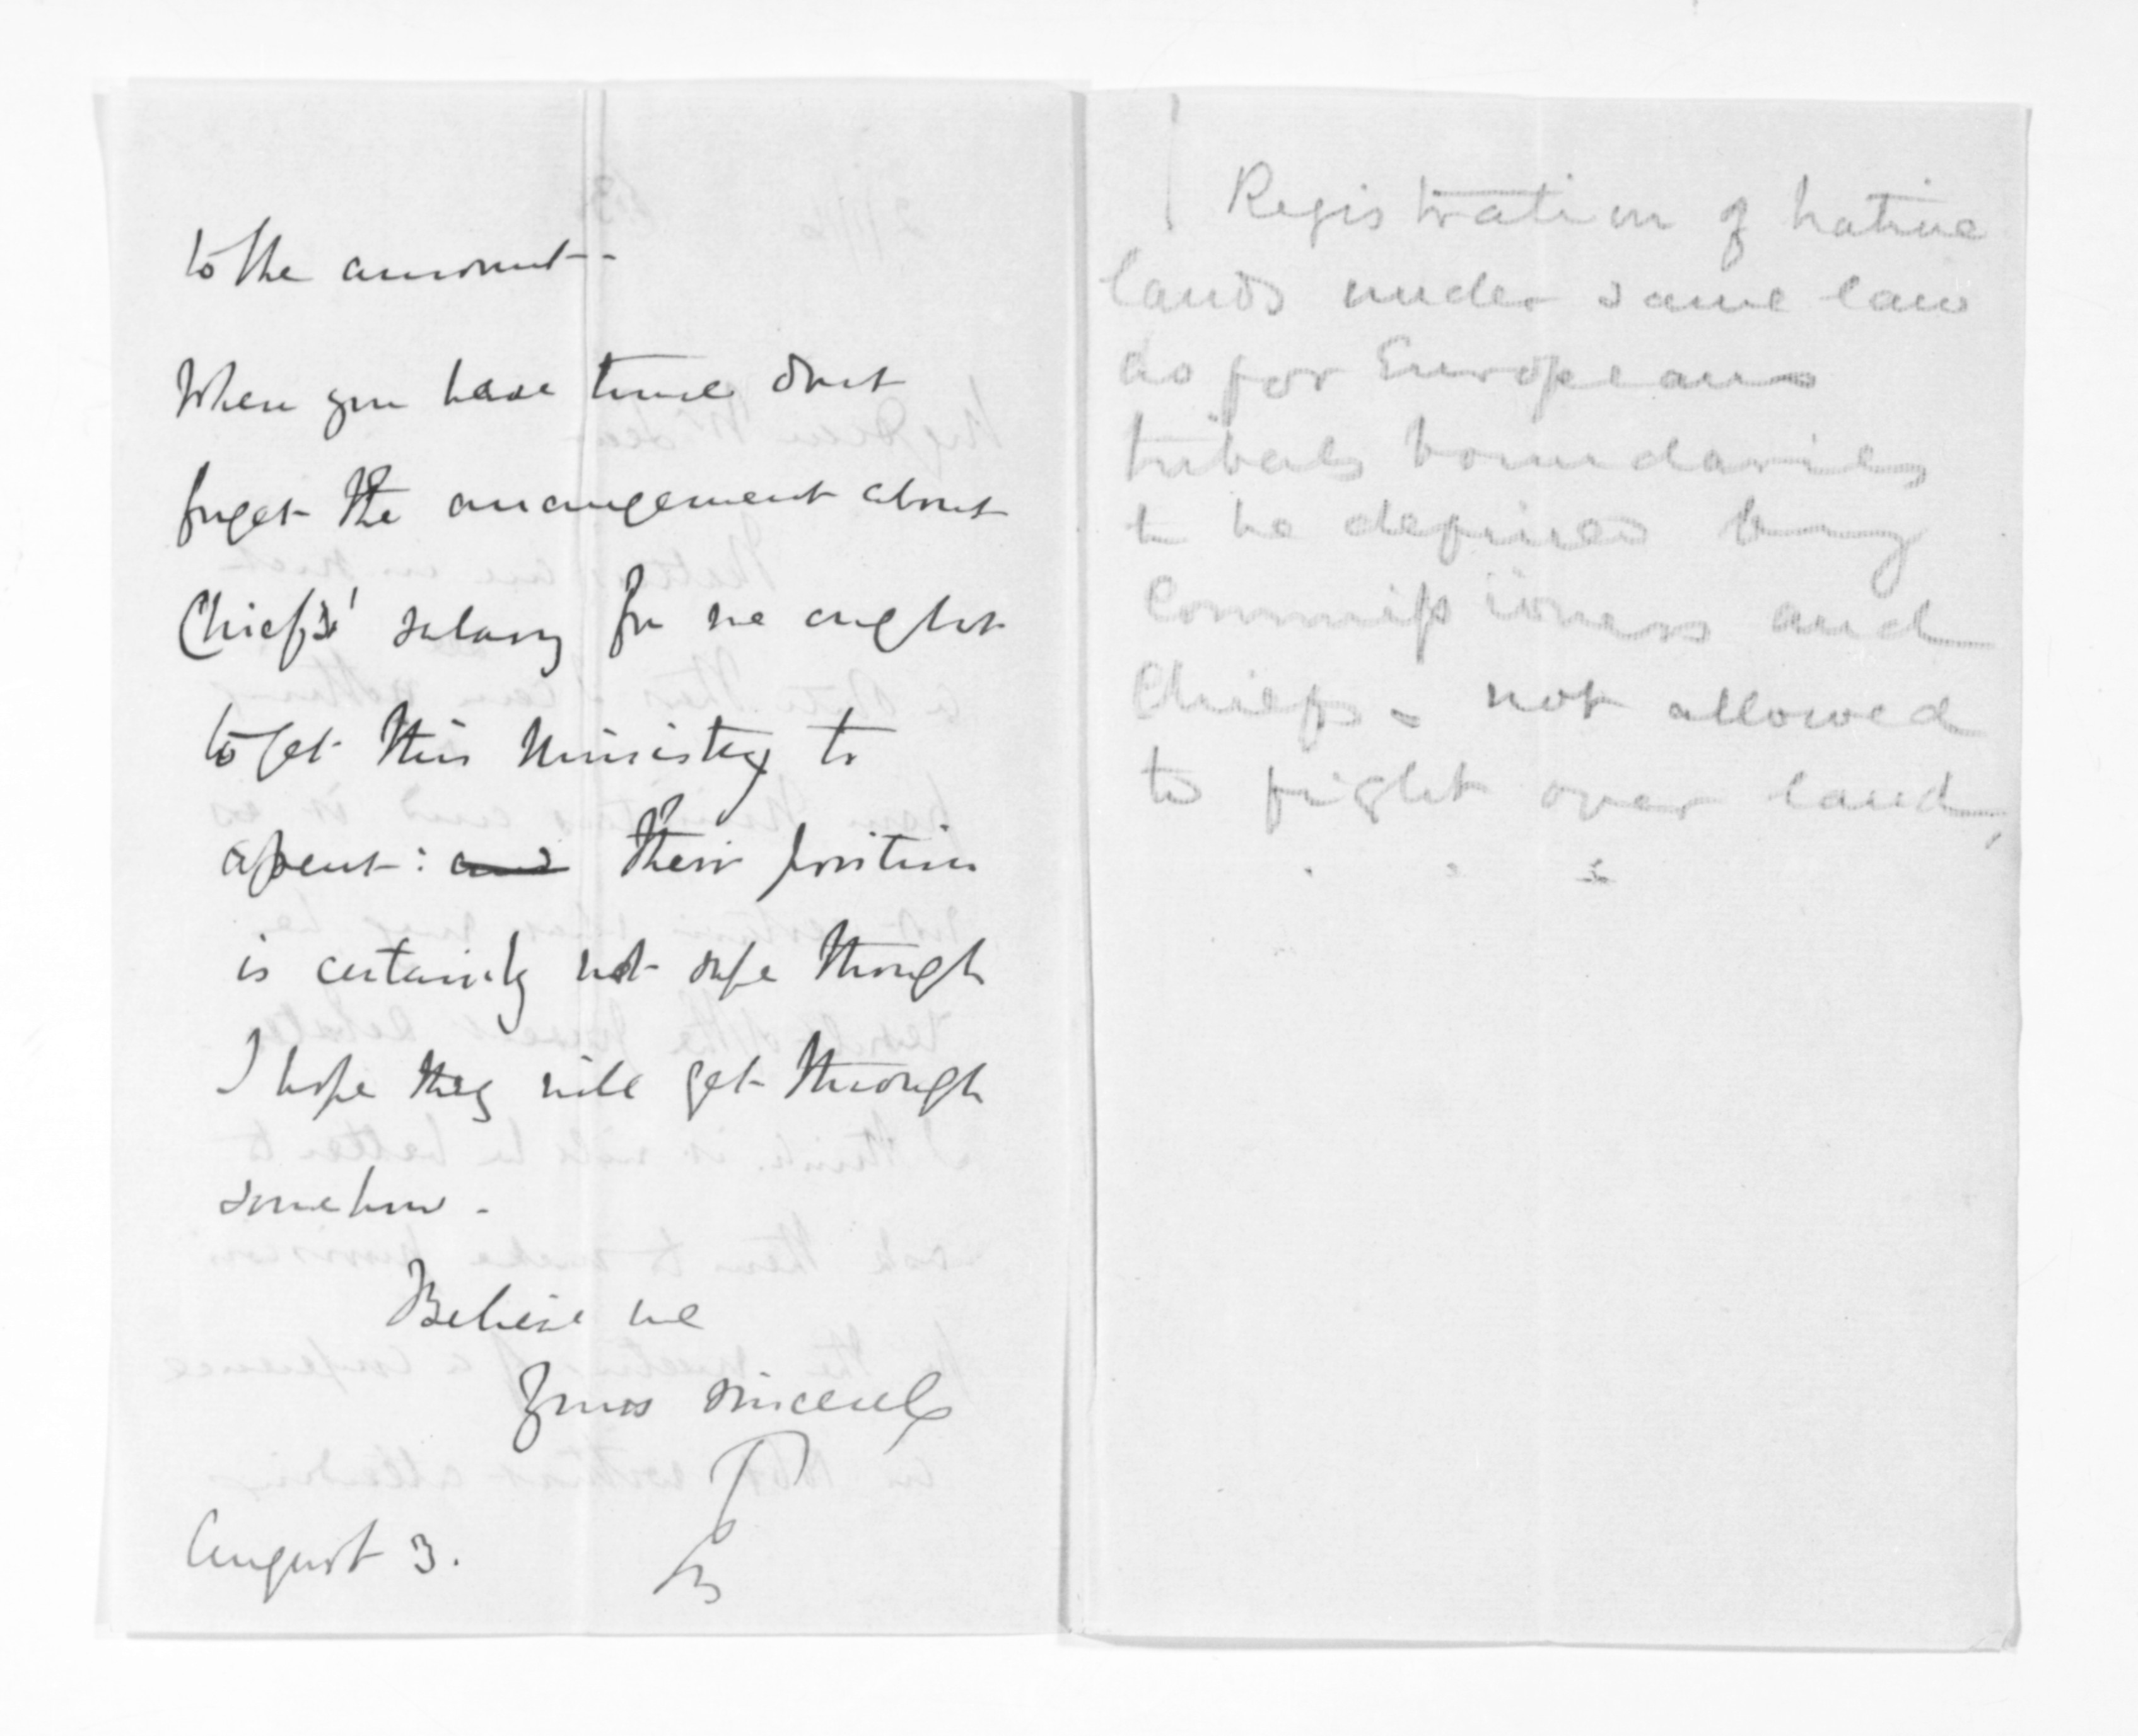 to the amount -
When you have time dont
forget the arrangement about
Chiefs' salary for we ought
to get this Ministry to
assent: and their position
is certainly not safe though
I hope they will get through
somehow -
Believe me
Yours sincerely
August 3.
Registration of native
lands under same law
as for Europeans
tribals boundaries
to be defined by
Commissioners and
Chiefs - not allowed
to fight over land,